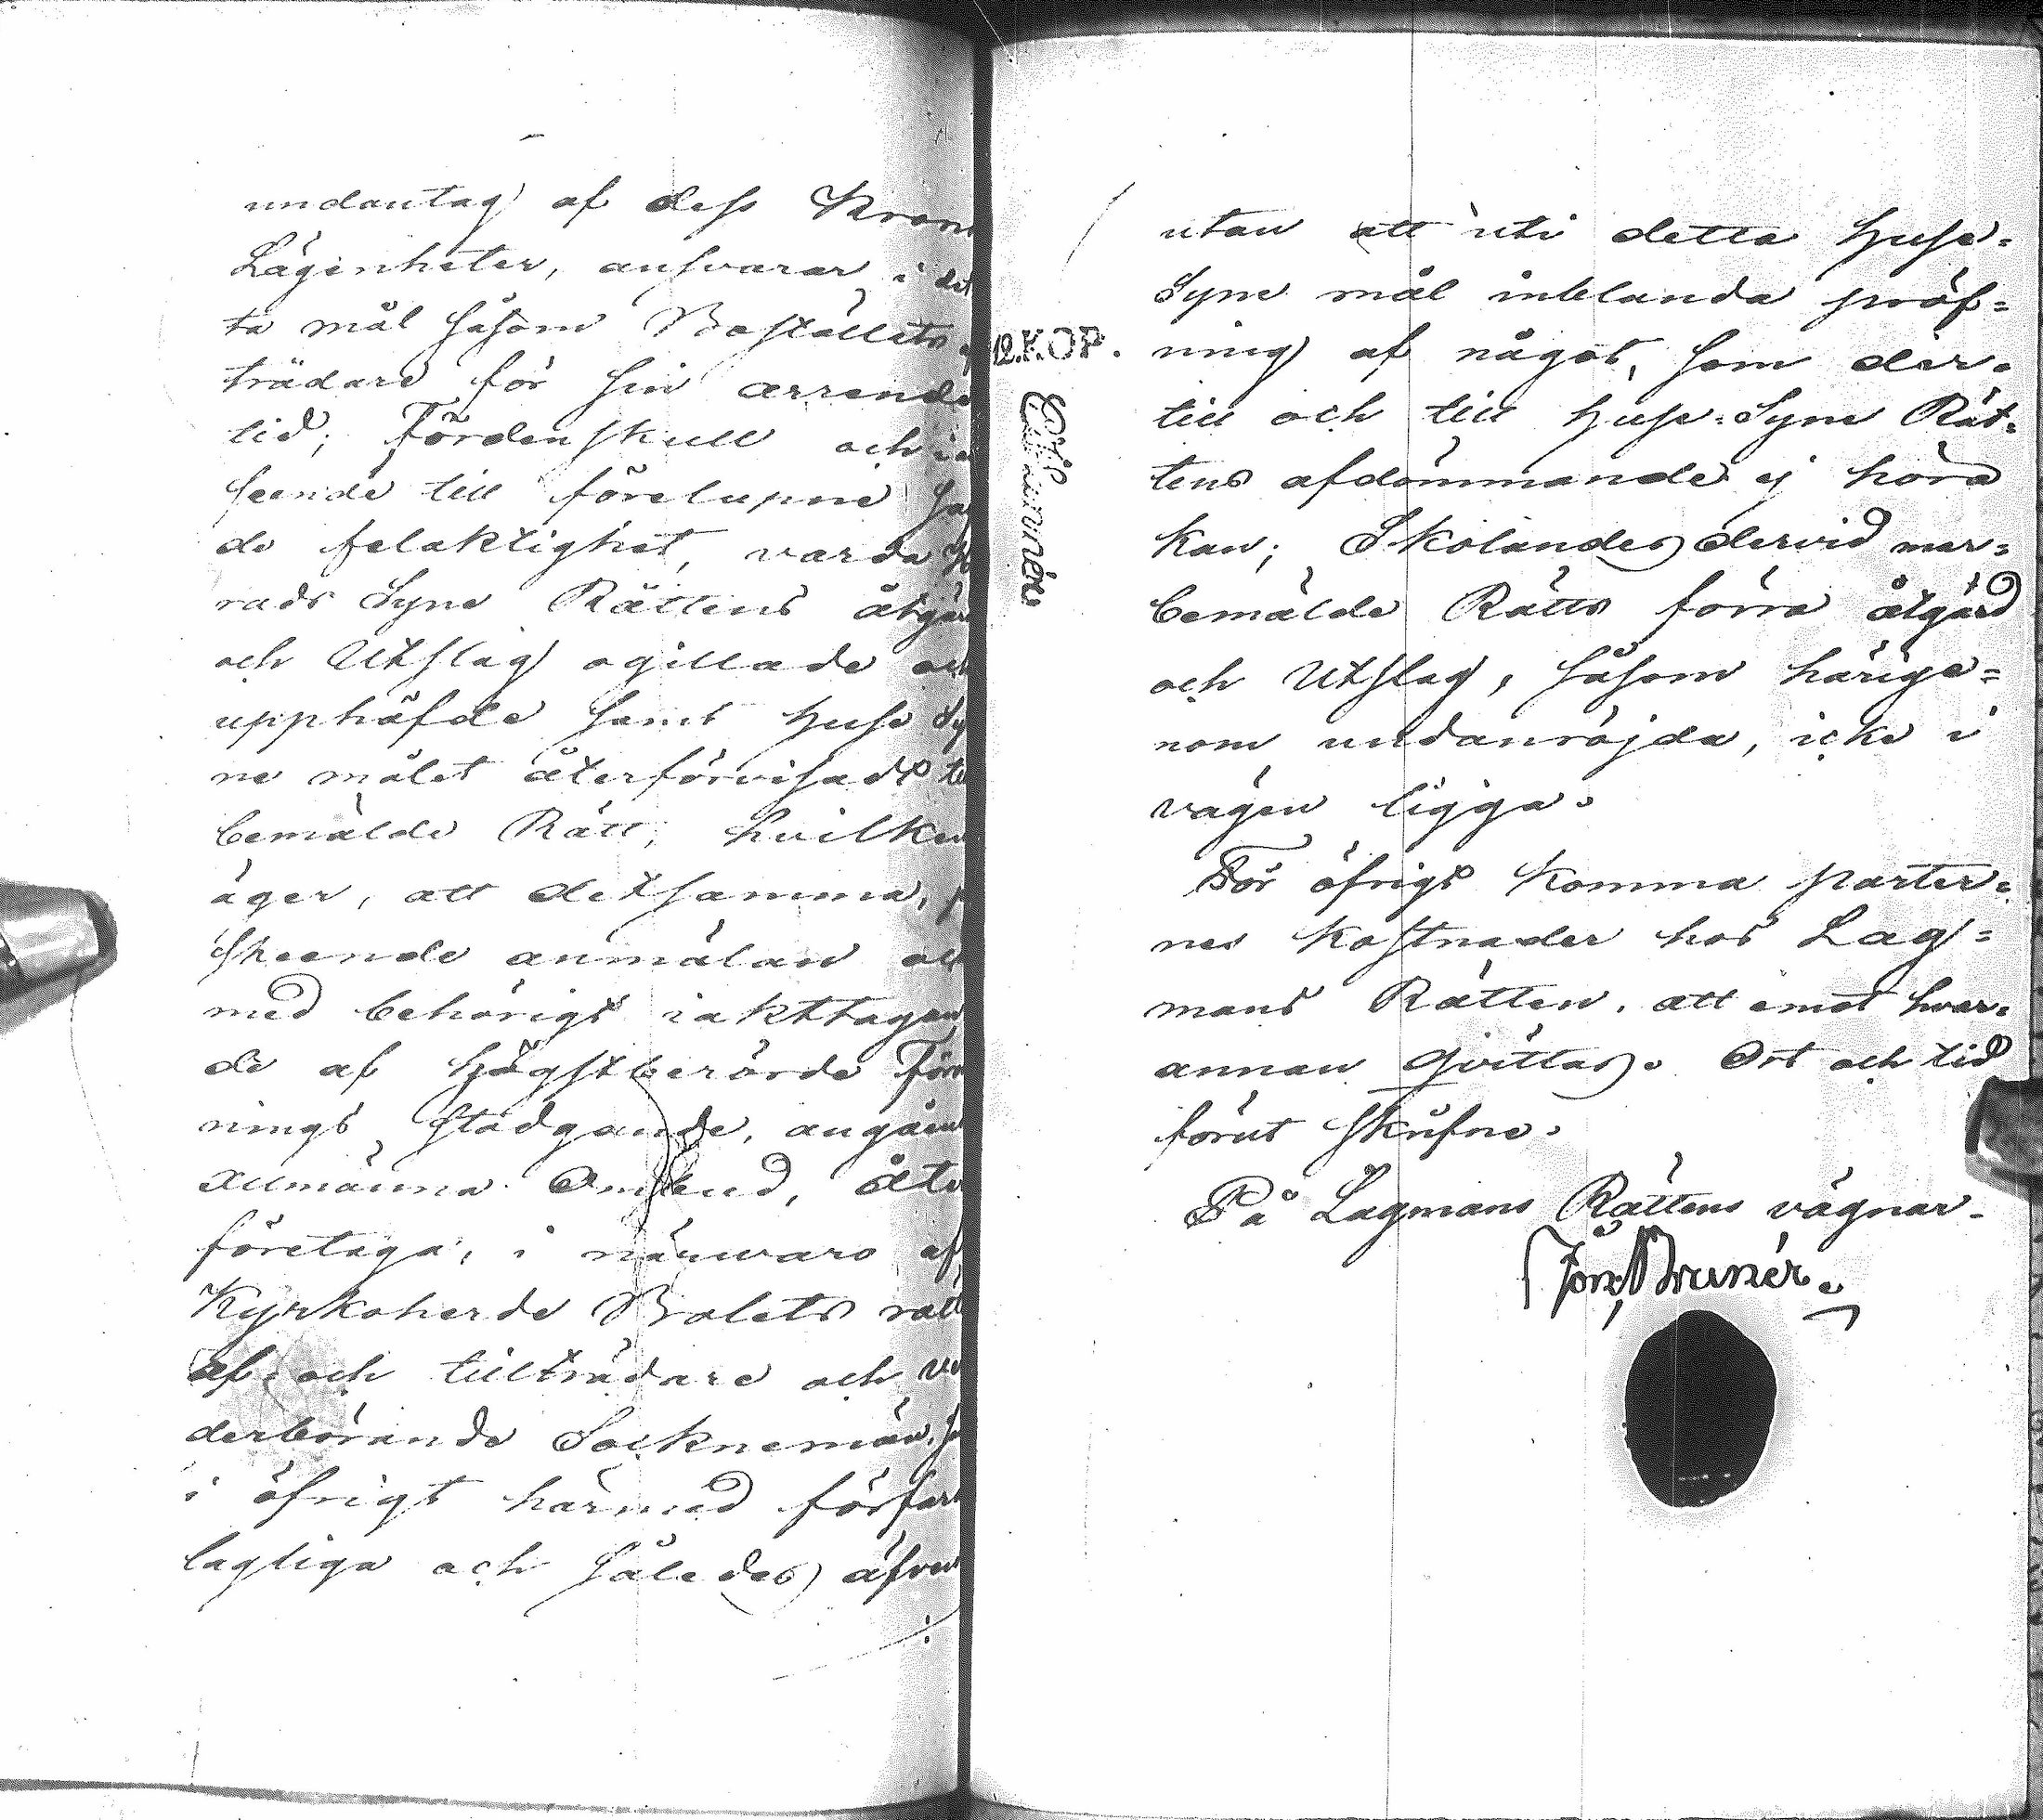 undantag af dess Krono
Lägenheter, ansvarar i det
ta mål såsom Boställets
trädare för sin arrende
tid; Fördenskull och i an
seende till förelupne
de felaktighet, varda Hä
rads Syne Rättens åtgärd
och Utslag ogillade och
upphäfde samt Huse Sy
ne målet återförvisadt till
bemälde Rätt, hvilken
äger, att detsamma, på
skeende anmälan och
med behörigt iakttagan
de af högstberörde Förord
nings stadgande, angående
allmänna Ombud, åter
företaga, i närwaro af
Kyrkoherde Bolets rätte
af- och tillträdare och ve
derbörande Socknemän,
i öfrigt härmed förfara
lagliga och således äfven
12.K.OP.
utan att uti detta Huse=
Syne mål inblanda pröf=
ning af något, som der=
till och till Huse=Syne Rät=
tens afdömmande ej höra
kan; Skolandes dervid mer=
bemälde Rätts förra åtgärd
och Utslag, såsom härige=
nom undanröjda, icke i
vägen ligga.
För öfrigt komma parter=
nes kostnader hos Lag=
mans Rätten, att emot hvar=
annan qvittas. Ort och tid
förut skrifne.
På Lagmans Rättens vägnar.